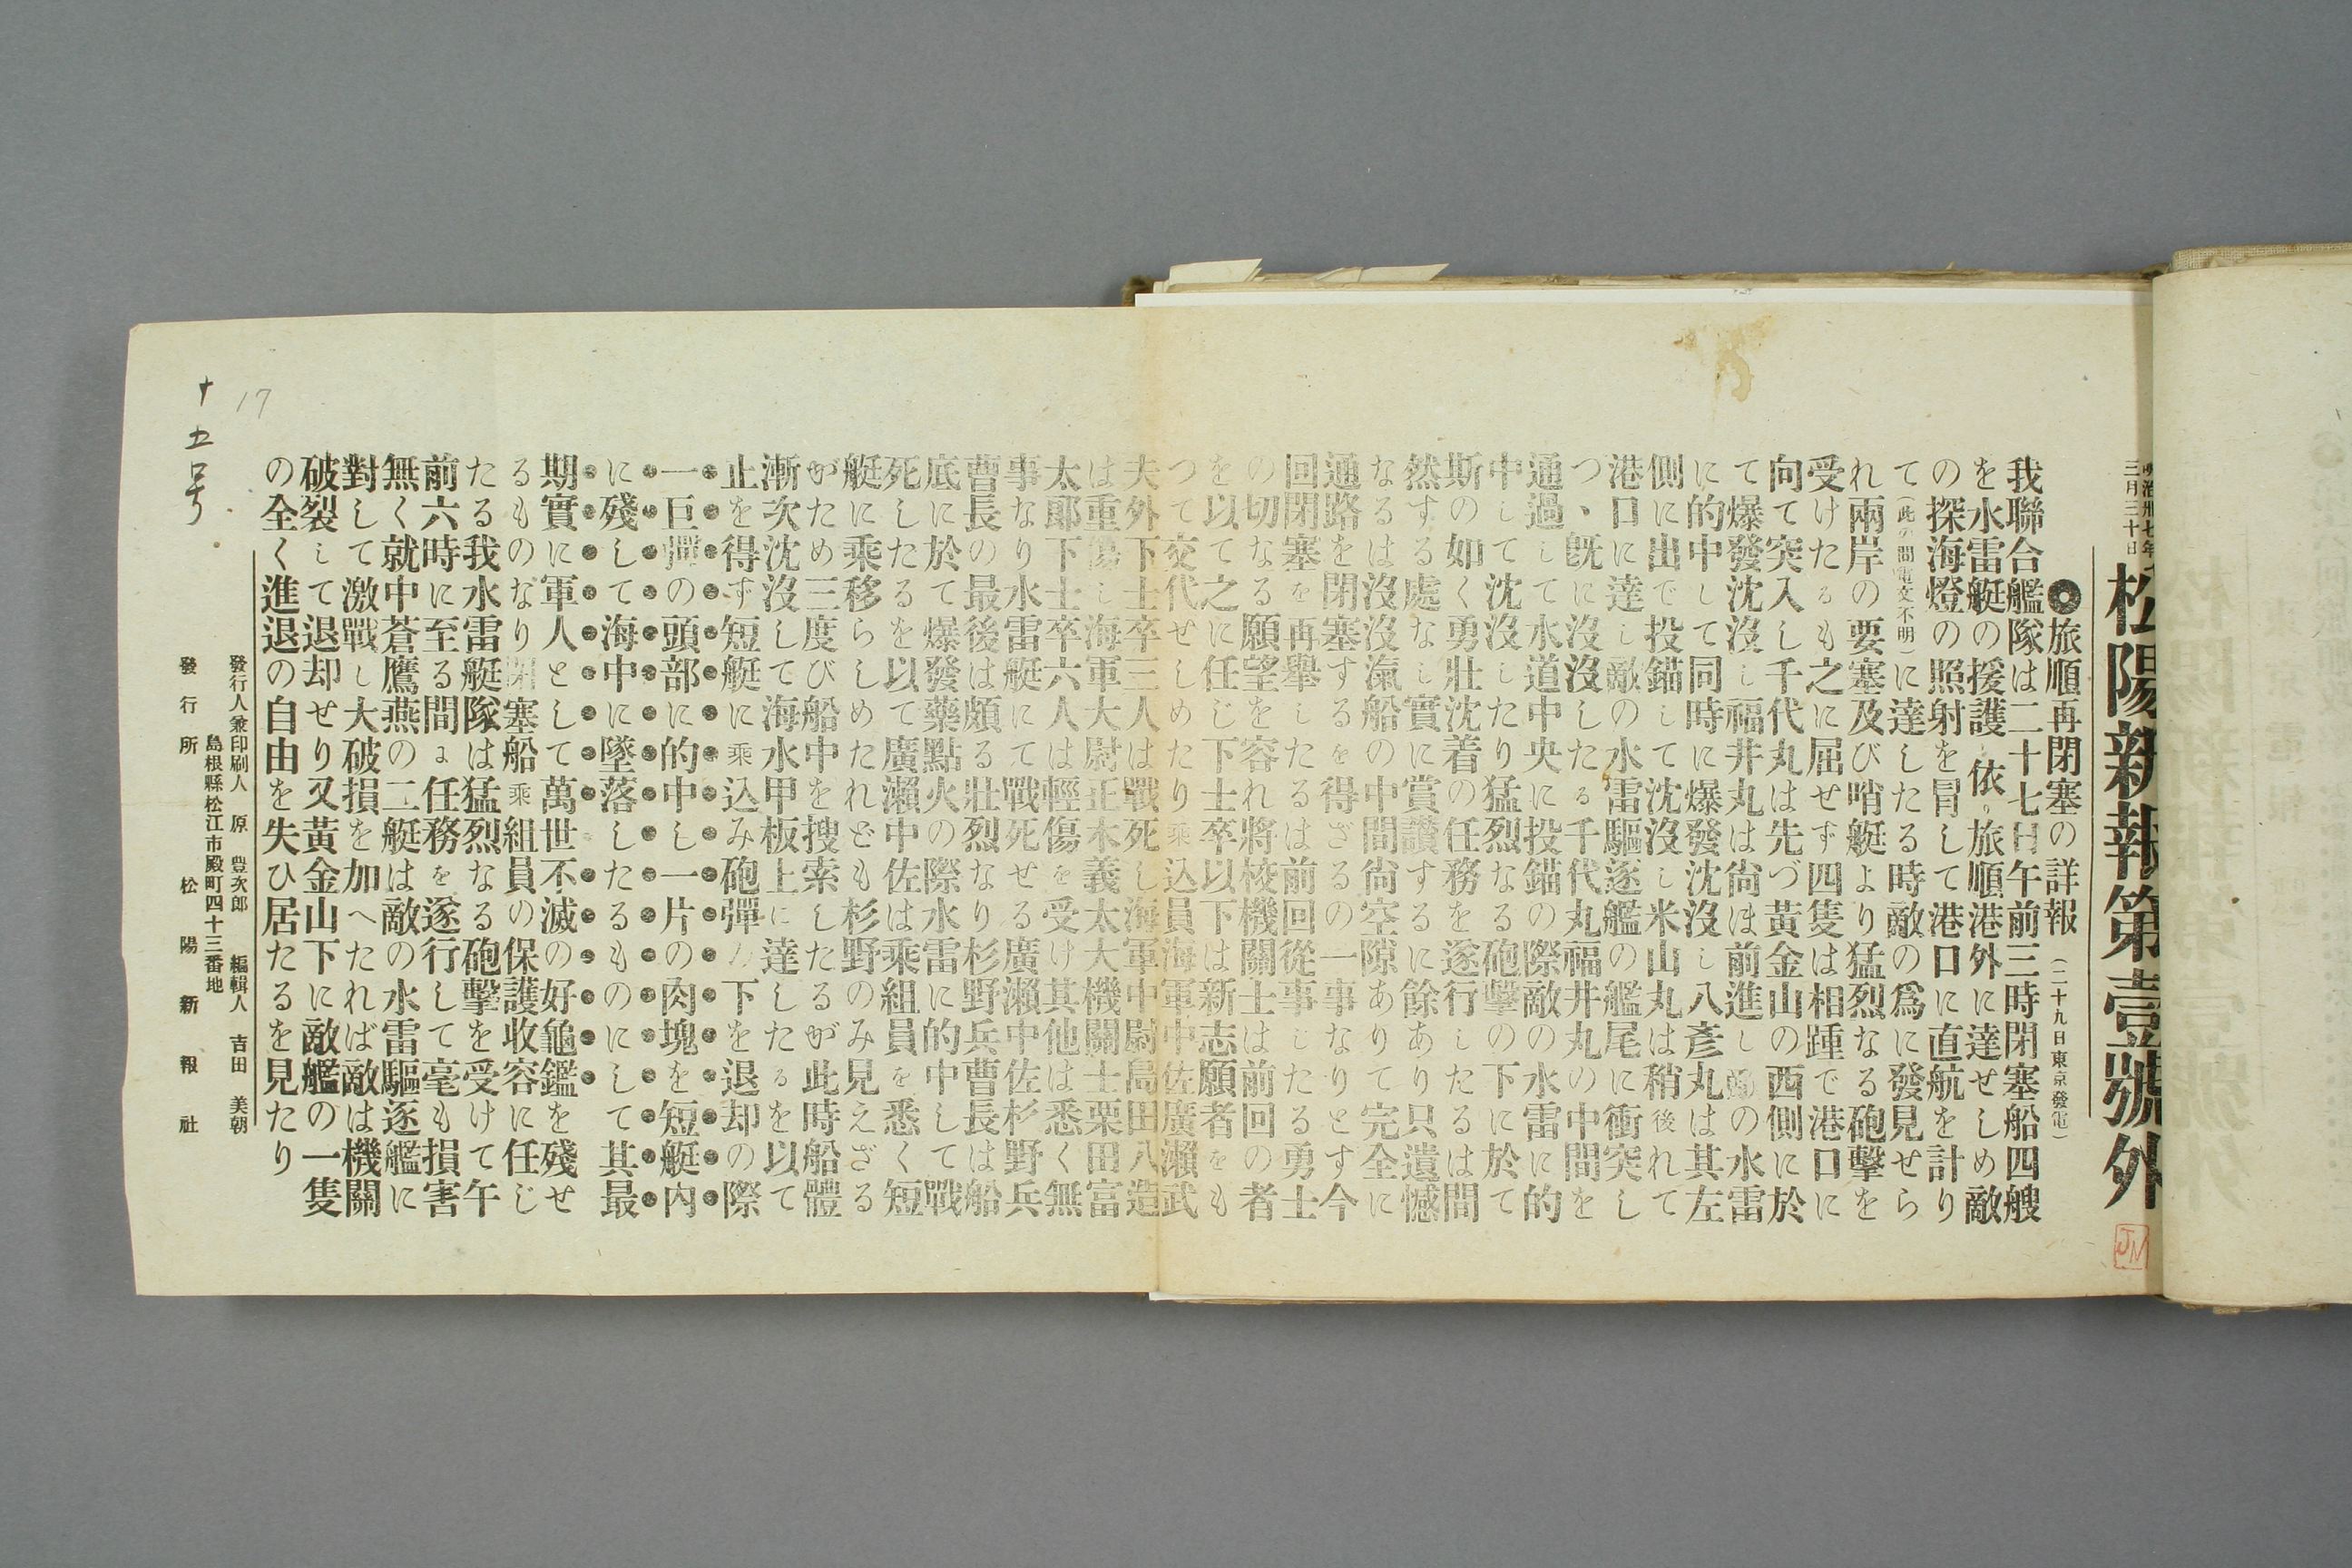 明治卅七年
三月三十日
松陽新報第壹號外
◉旅順再閉塞の詳報（二十九日東京發電）
我聯合艦隊は二十七日午前三時閉塞船四艘
を水雷艇の援護に依り旅順港外に達せしめ敵
の探海燈の照射を冒して港口に直航を計り
て（此の間電文不明）に達したる時敵の爲に發見せら
れ兩岸の要塞及び哨艇より猛烈なる砲擊を
受けたるも之に屈せず四隻は相踵で港口に
向て突入し千代丸は先づ黃金山の西側に於
て爆發沈沒し福井丸は尙ほ前進し敵の水雷
に的中して同時に爆發沈沒し八彥丸は其左
側に出で投錨して沈沒し米山丸は稍後れて
港口に達し敵の水雷驅逐艦の艦尾に衝突し
つゝ旣に沒沒したる千代丸福井丸の中間を
通過して水道中央に投錨の際敵の水雷に的
中して沈沒したり猛烈なる砲擊の下に於て
斯の如く勇壯沈着の任務を遂行したるは間
然する處なし實に賞讃するに餘あり只遺憾
なるは沒沒滊船の中間尙空隙ありて完全に
通路を閉塞するを得ざるの一事なりとす今
回閉塞を再擧したるは前回從事したる勇士
の切なる願望を容れ將校機關士は前回の者
を以て之に任じ下士卒以下は新志願者をも
つて交代せしめたり乘込員海軍中佐廣瀨武
夫外下士卒三人は戰死し海軍中尉島田八造
は重傷し海軍大尉正木義太大機關士栗田富
太郎下士卒六人は輕傷を受け其他は悉く無
事なり水雷艇にて戰死せる廣瀨中佐杉野兵
曹長の最後は頗る壯烈なり杉野兵曹長は船
底に於て爆發藥點火の際水雷に的中して戰
死したるを以て廣瀨中佐は乘組員を悉く短
艇に乘移らしめたれども杉野のみ見えざる
がため三度び船中を搜索したるが此時船體
漸次沈沒して海水甲板上に達したるを以て
止を得ず短艇に乘込み砲彈の下を退却の際
一巨彈の頭部に的中し一片の肉塊を短艇內
に殘して海中に墜落したるものにして其最
期實に軍人として萬世不滅の好龜鑑を殘せ
るものなり閉塞船乘組員の保護收容に任じ
たる我水雷艇隊は猛烈なる砲擊を受けて午
前六時に至る間よ任務を遂行して毫も損害
無く就中蒼鷹燕の二艇は敵の水雷驅逐艦に
對して激戰し大破損を加へたれば敵は機關
破裂して退却せり又黃金山下に敵艦の一隻
の全く進退の自由を失ひ居たるを見たり
發行人兼印刷人 原 豊次郎 編輯人 吉田 美朝
島根縣松江市殿町四十三番地
發行所 松陽新報社
17
十五号
JN